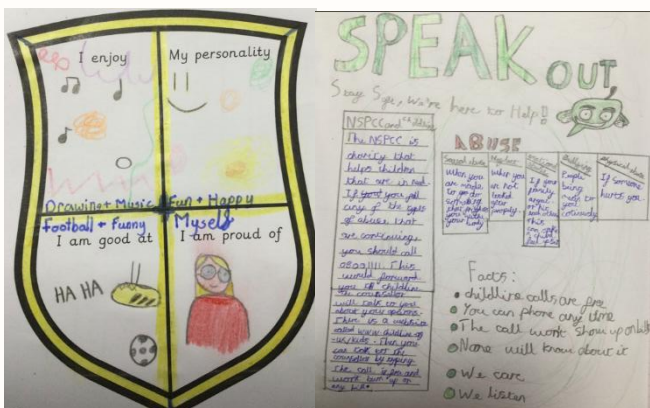 I enjoy
My personality
Drawing + Music
Fun + Happy
Football + Funny
Myself
I am good at
I am proud of
HA HA
SPEAK OUT
Stay Safe, We're here to Help!!
NSPCC and
The NSPCC is
charity that
helps children
that are in
If you
any of the types
of abuse that
are continuing
you should call
08001111. This
would forward
you to childline
the counsellor
will talk to you
about your options.
There is a website
called www.childline.org
.uk/kids. Then you
can talk to the
counsellor by typing.
The call is free and
wont turn up on
any bill.
ABUSE
Sexual abuse
When you
are made
to do
something
with
your
body
Neglect
When you
are not
looked
after
properly
If your
family
this
can
Bullying
being
mean to
you
Physical abuse
If someone
hurts you
Facts:
childline calls are free
You can phone any time
The call wont show up on bills
None will know about it
We care
We listen